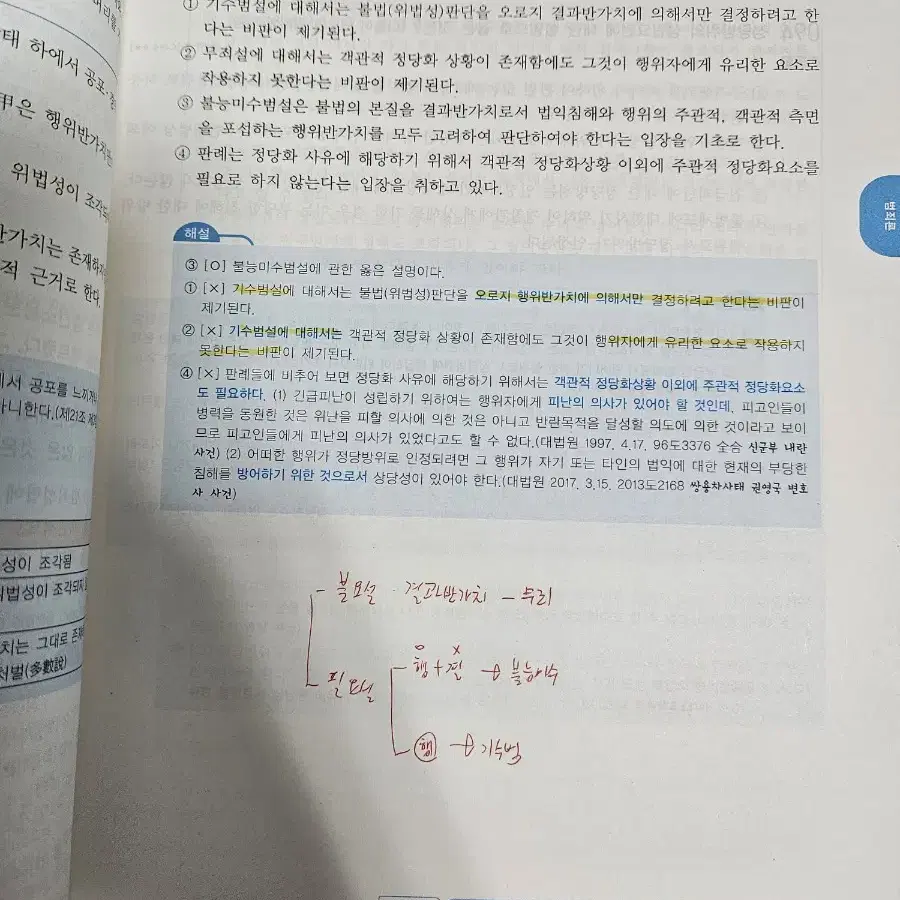 ① 기수범설에 대해서는 불법(위법성)판단을 오로지 결과반가치에 의해서만 결정하려고 한
다는 비판이 제기된다.
② 무죄설에 대해서는 객관적 정당화 상황이 존재함에도 그것이 행위자에게 유리한 요소로
작용하지 못한다는 비판이 제기된다.
③ 불능미수범설은 불법의 본질을 결과반가치로서 법익침해와 행위의 주관적, 객관적 측면
을 포섭하는 행위반가치를 모두 고려하여 판단하여야 한다는 입장을 기초로 한다.
④ 판례는 정당화 사유에 해당하기 위해서 객관적 정당화상황 이외에 주관적 정당화요소를
필요로 하지 않는다는 입장을 취하고 있다.
해설
③ [O] 불능미수범설에 관한 옳은 설명이다.
① [×] 기수범설에 대해서는 불법(위법성)판단을 오로지 행위반가치에 의해서만 결정하려고 한다는 비판이
제기된다.
② [×] 기수범설에 대해서는 객관적 정당화 상황이 존재함에도 그것이 행위자에게 유리한 요소로 작용하지
못한다는 비판이 제기된다.
④ [×] 판례들에 비추어 보면 정당화 사유에 해당하기 위해서는 객관적 정당화상황 이외에 주관적 정당화요소
도 필요하다. (1) 긴급피난이 성립하기 위하여는 행위자에게 피난의 의사가 있어야 할 것인데, 피고인들이
병력을 동원한 것은 위난을 피할 의사에 의한 것은 아니고 반란목적을 달성할 의도에 의한 것이라고 보이
므로 피고인들에게 피난의 의사가 있었다고도 할 수 없다.(대법원 1997. 4.17. 96도3376 全合 신군부 내란
사건) (2) 어떠한 행위가 정당방위로 인정되려면 그 행위가 자기 또는 타인의 법익에 대한 현재의 부당한
침해를 방어하기 위한 것으로서 상당성이 있어야 한다.(대법원 2017. 3.15. 2013도2168 쌍용차사태 권영국 변호
사 사건)
불요설 · 결과반가치 - 무죄
○ ×
필요설 행 + 결 → 불능미수
행 → 기수범
범죄론
태 하에서 공포·경
甲은 행위반가치론
위법성이 조각되
반가치는 존재하지
적 근거로 한다
에서 공포를 느끼거나
아니한다.(제21조 제3
성이 조각됨
위법성이 조각되지
치는 그대로 존재
처벌(多數說)